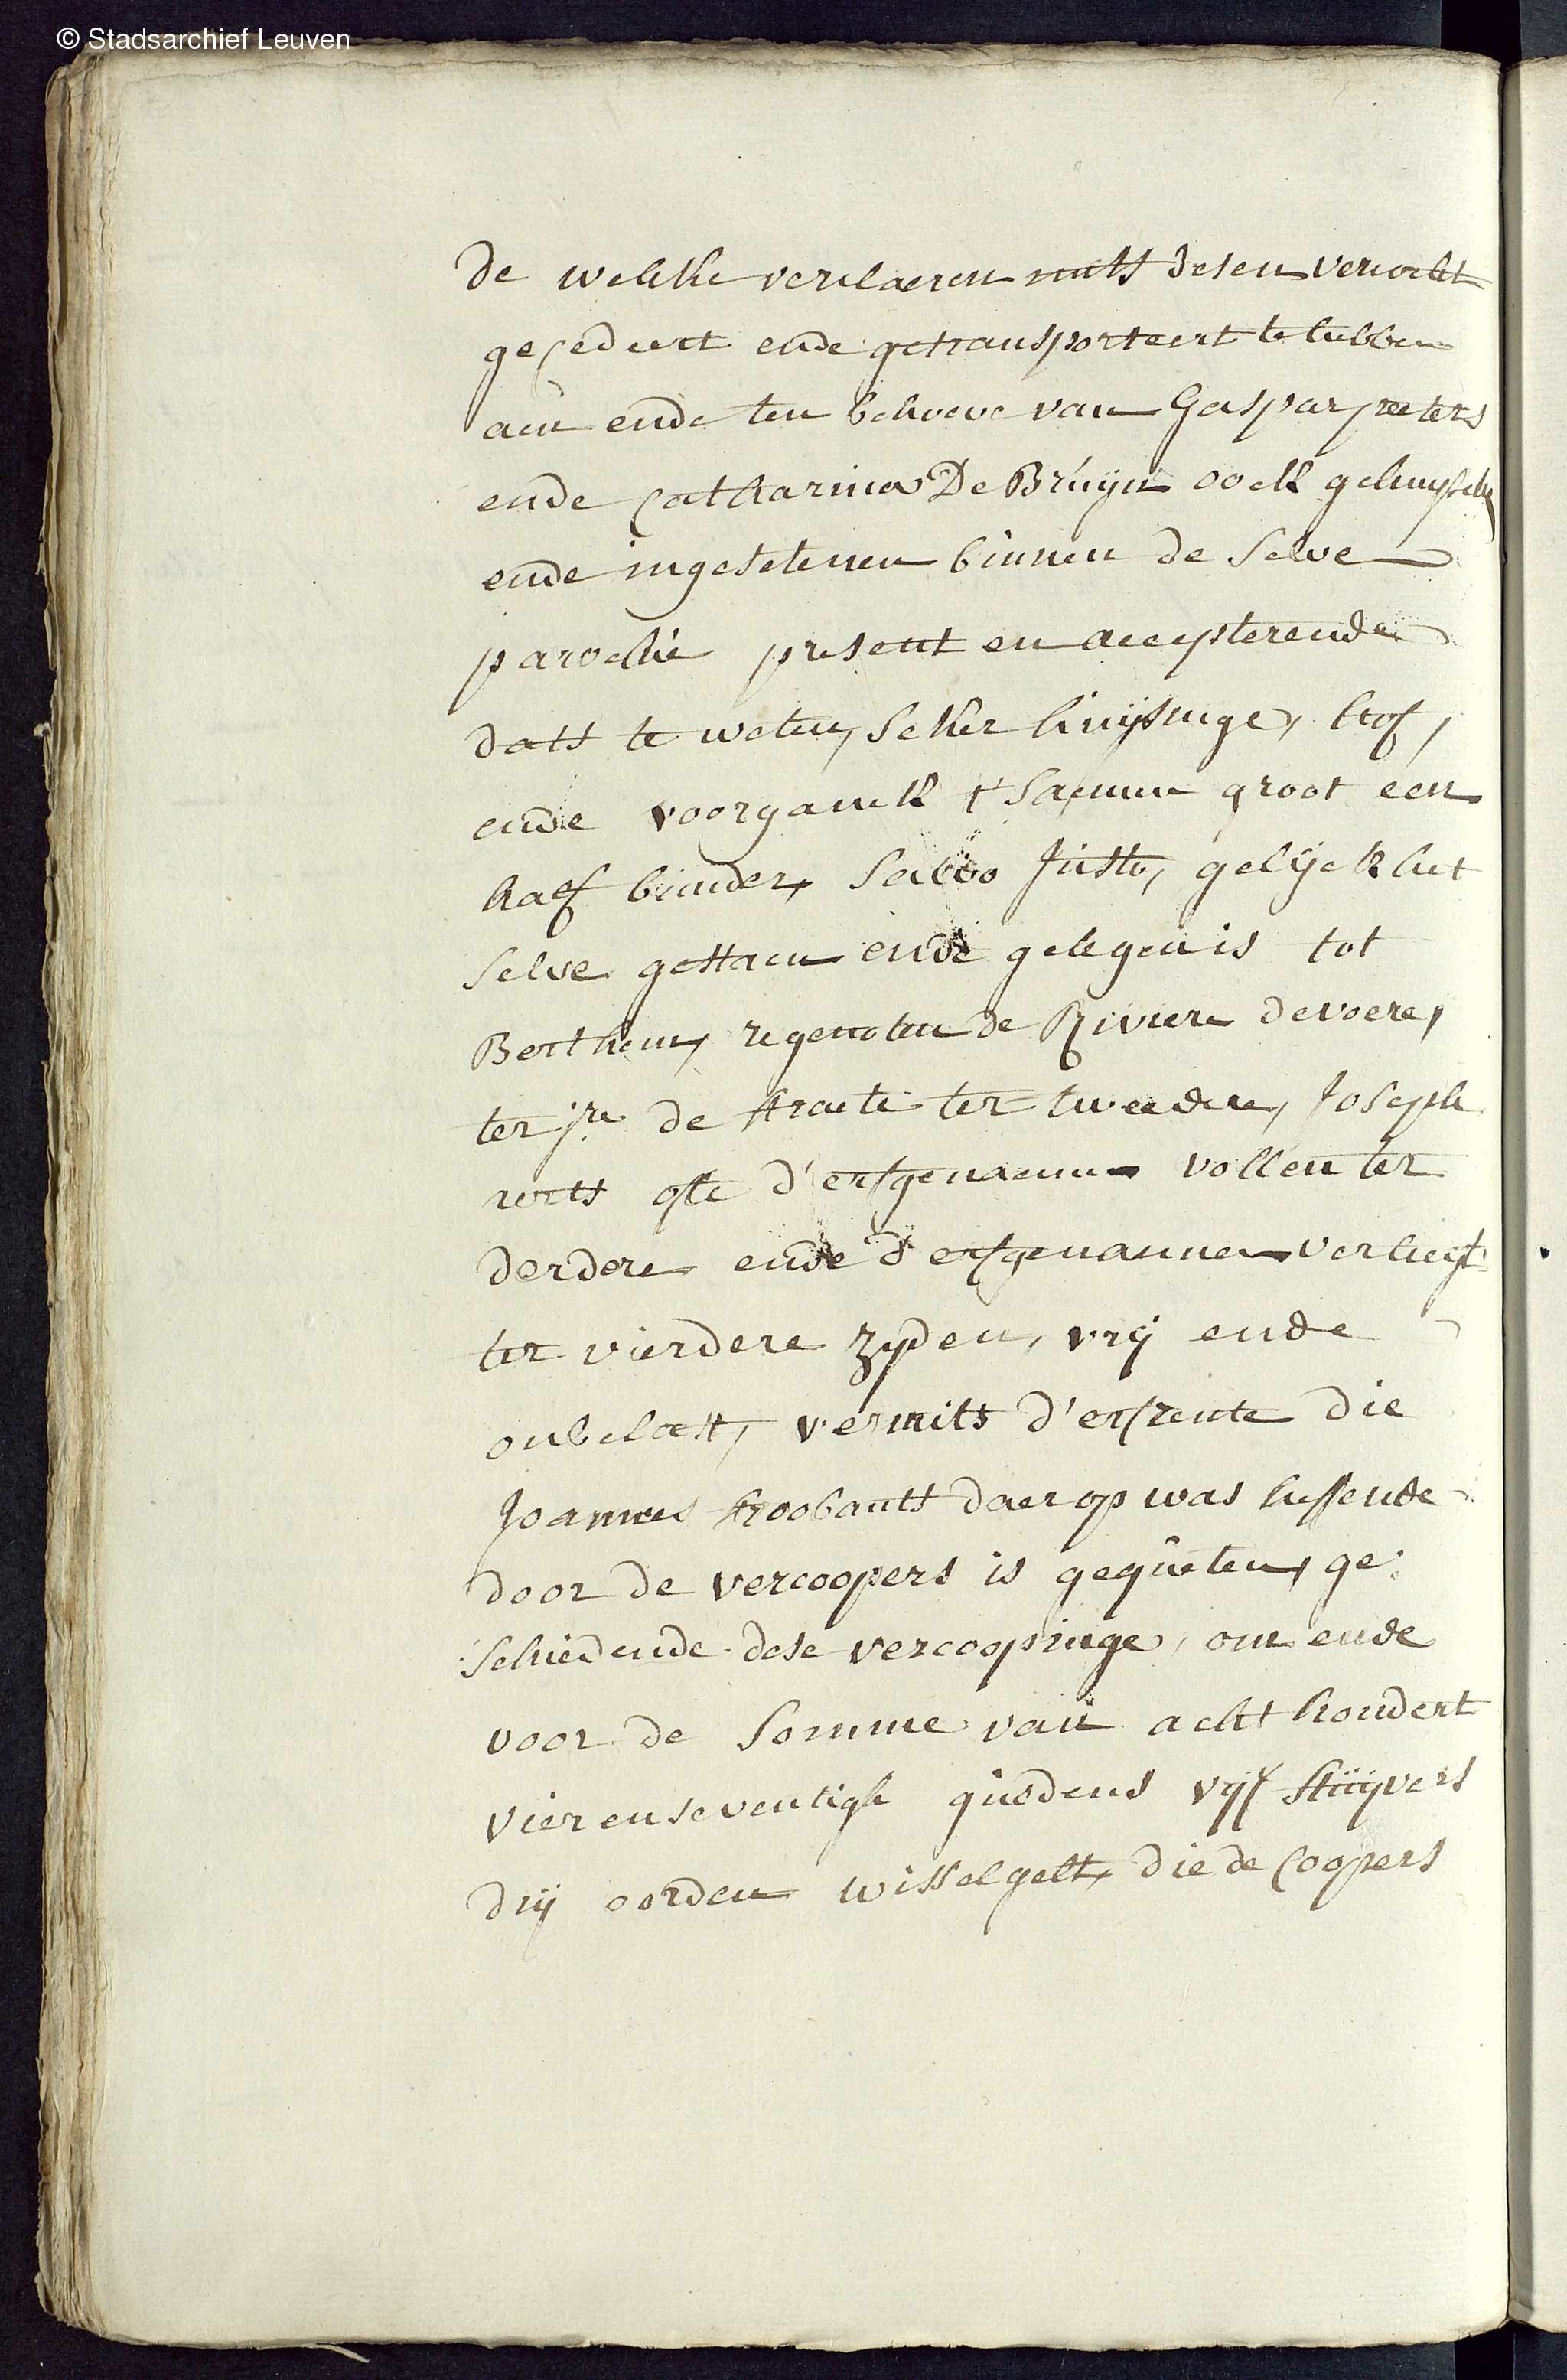 © Stadsarchief Leuven
de welcke verclaeren mits desen vercocht
gecedeert ende getransporteert te hebben
aen ende ten behoeve van Gaspar peeters
ende Catharina De Bruijn oock gehuysch
ende ingesetenen binnen de selve
parochie present en accepterende
dats te weten, seker huijsinge, hof,
ende voorganck t'saemen groot een
half bunder, salvo justo, gelijck het
selve gestaen ende gelegen is tot
Berthem, regenoten de Riviere de voere,
ter jre de straete ter tweedere, Joseph
ofte d'erfgenaemen vollen ter
derdere ende d'erfgenaemen
ter vierdere zyden, vrij ende
onbelast, vermits d'erfrente die
Joannes stroobants daer op was heffende
door de vercoopers is gequeten, ge:
:schiedende dese vercoopinge, om ende
voor de somme van acht hondert
vierenseventigh guldens vijf stuijvers
drij oorden wisselgelt, die de Coopers